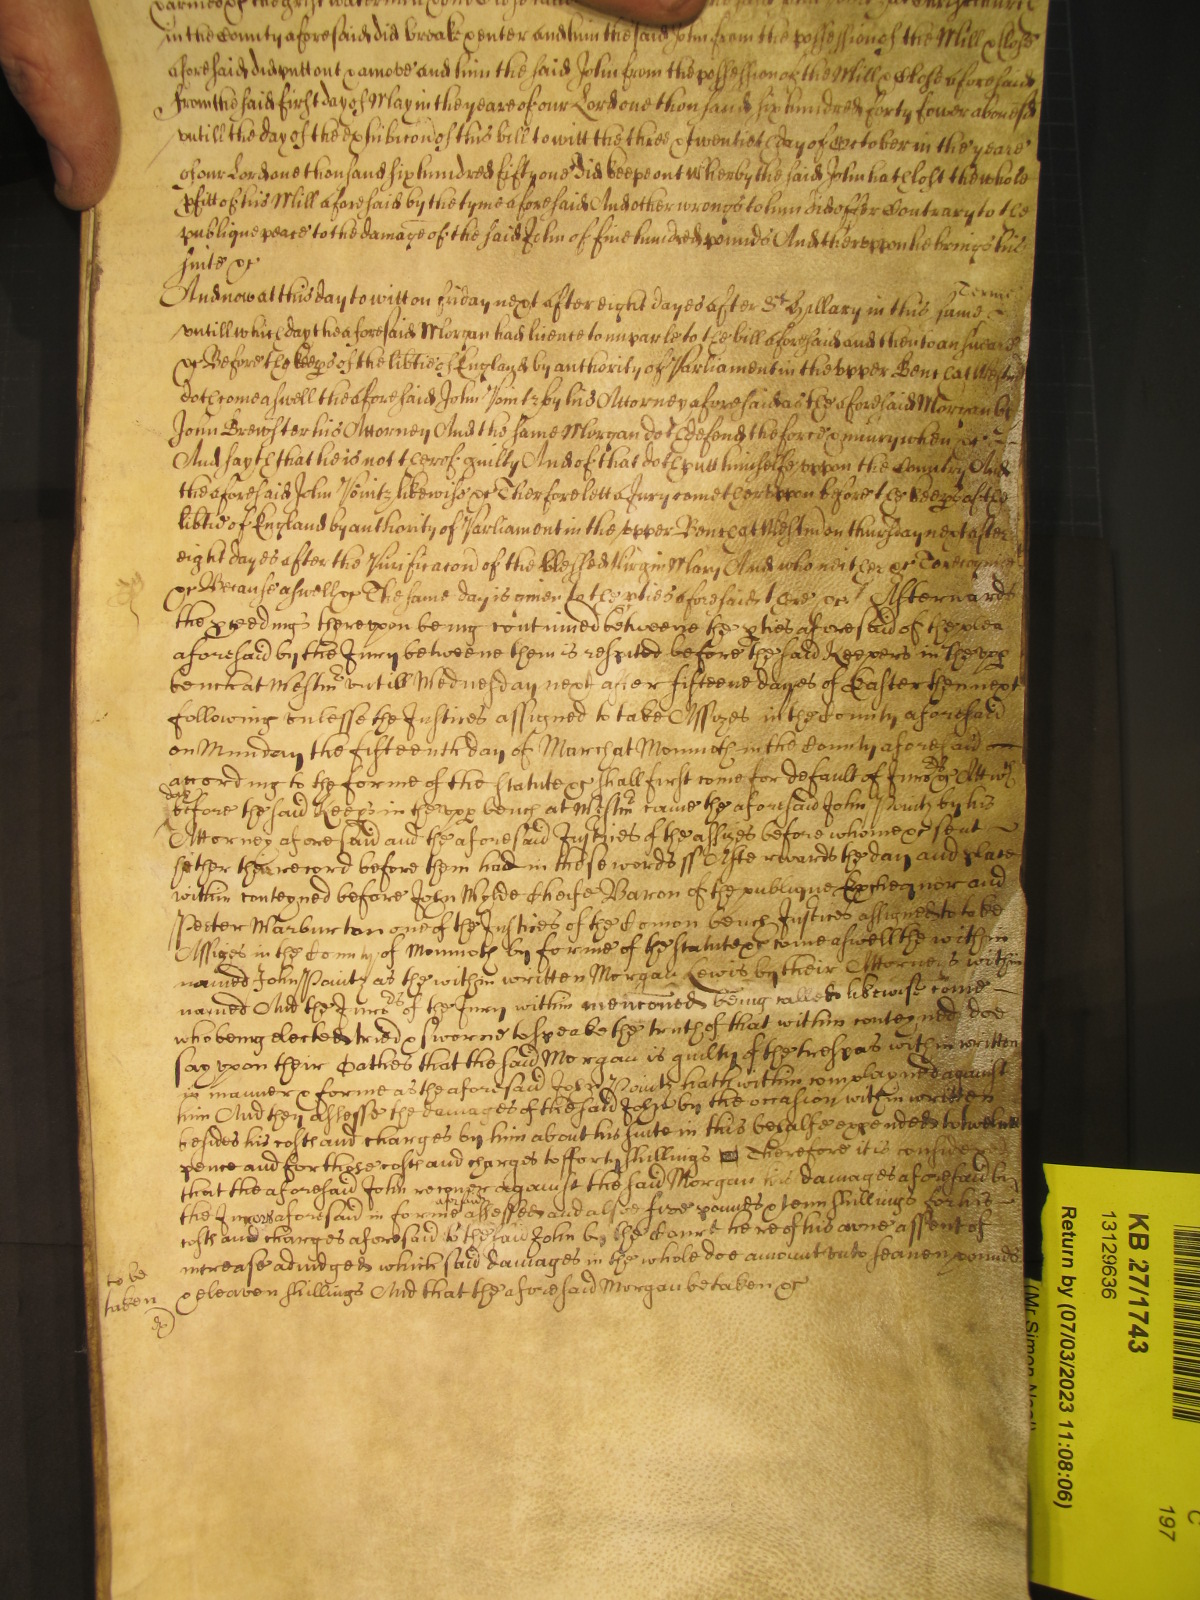 in the County aforesaid did breake & enter and him the said John from the possession of the Mill & Close
aforesaid did putt out & amove and him the said John from the possession of the Mill & Close aforesaid
from the said first day of May in the yeare of our Lord one thousand six hundred forty fower abovesd
untill the day of the exhibicon of this bill to witt the three & twentieth day of October in the yeare
of our Lord one thousand six hundred fifty one did keepe out Wherby the said John hath lost the whole
pfitt of his Mill aforesaid by the tyme aforesaid And other wrongs to him did offer Contrary to the
publique peace to the damage of the said John of five hundred pounds And thereuppon he brings his
suite &c
And now at this day to witt on friday next after eight dayes after St Hillary in this same Terme
untill which day the aforesaid Morgan had licence to imparle to the bill aforesaid and then to answeare
&c Before the keeps of the libtie of England by authority of Parliament in the upper Bench at Westm
doth come aswell the aforesaid John Pointz by his Attorney aforesaid as the aforesaid Morgan by
John Brewster his Attorney And the same Morgan doth defend the force & iniury when &c
And sayth that he is not therof guilty And of that doth putt himselfe uppon the Country And
the aforesaid John Pointz likewise &c Therfore lett a Jury come thereuppon before the keeps of the
libtie of England by authority of Parliament in the upper Bench at Westm on thursday next after
eight dayes after the Purificacon of the blessed Virgin Mary And who neither &c To recognize
&c Because aswell &c The same day is given to the pties aforesaid there &c Afterwards
the pceedings thereupon being continued betweene the pties aforesaid of the plea
aforesaid by the Jury betweene them is respited before the said Keepers in the upp
bench at Westm untill Wednesday next after fifteene dayes of Easter then next
following unlesse the Justices assigned to take Assizes in the County aforesaid
on Munday the fifteenth day of March at Monmoth in the County aforesaid
according to the forme of the statute &c shall first come for default of Jurors &c Att wch
day before the said Keeps in the upp bench at Westm came the aforesaid John Pointz by his
Attorney aforesaid and the aforesaid Justices of the assizes before whome &c sent
hither their record before them had in these words ss Afterwards the day and place
within conteyned before John Wylde Cheife Baron of the publique Exchequor and
Peeter Warburton one of the Justices of the Comon bench Justices assigned to take
Assizes in the County of Monmoth by forme of the statute &c come aswell the within
named John Pointz as the within written Morgan Lewis by their Attorneys within
named And the Jurors of the Jury within menconed being called likewise come
who being elected tried & sworne to speake the truth of that within conteyned doe
say upon their Oathes that the said Morgan is guilty of the trespas within written
in manner & forme as the aforesaid John Pointz hath within complayned against
him And they assesse the damages of the said John by the occasion within written
besides his costs and charges by him about his suite in this behalfe expended to twelve
pence and for those costs and charges to forty shillings Therefore it is considered
that the aforesaid John recover against the said Morgan his damages aforesaid by
the Jurors aforesaid in forme aforesaid assessed and alsoe five pounds & tenn shillings for his
costs and charges aforesaid to the said John by the Court here of his owne assent of
increase adiudged which said damages in the whole doe amount unto seaven pounds
& eleaven shillings And that the aforesaid Morgan be taken &c
to be
taken
KB 27/1743
13129636
Return by (07/03/2023 11:08:06)
197